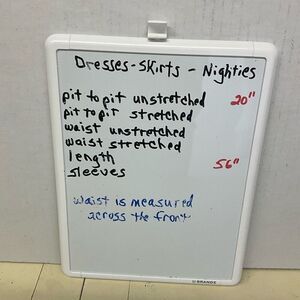 Dresses - Skirts - Nighties
pit to pit unstretched 20"
pit to pit stretched
waist unstretched
waist stretched
length 56"
sleeves
waist is measured
across the front
BRANDS